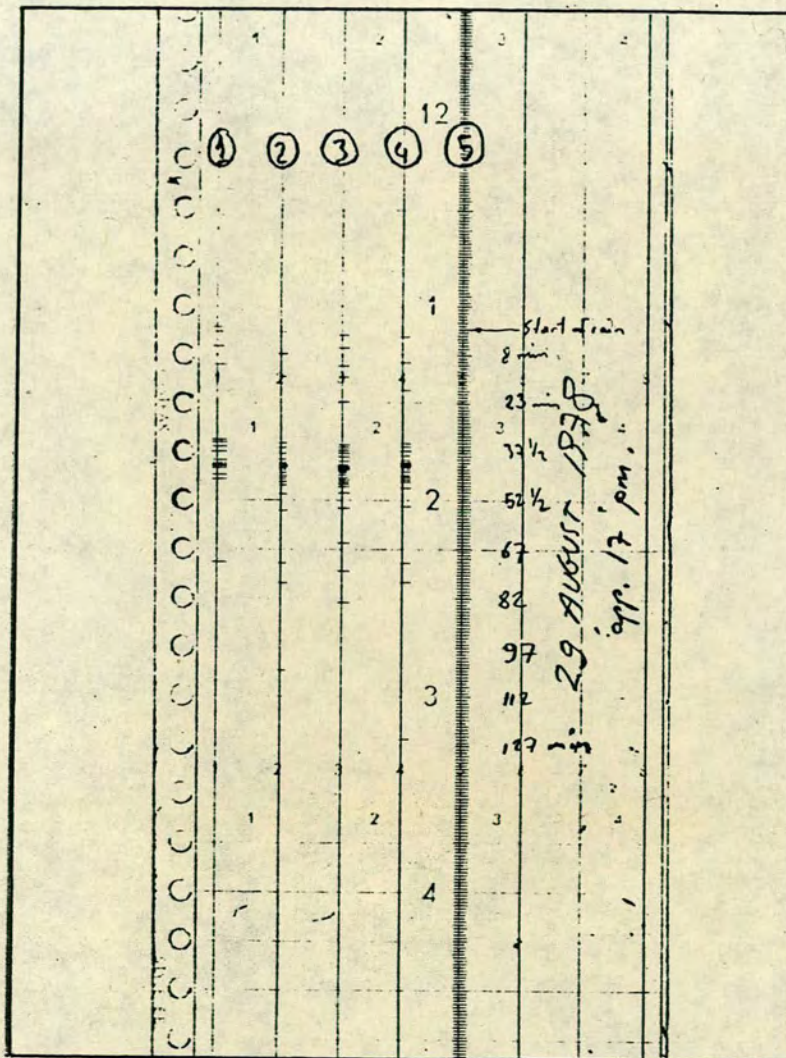 1 2 3 4
12
1 2 3 4 5
1
Start of rain
8 min.
23 min
1 2 3 4
37 1/2
52 1/2
2
67
82
97
3
112
127 min
29 AUGUST 1978
app. 17 pm.
1 2 3 4
1 2 3 4
4